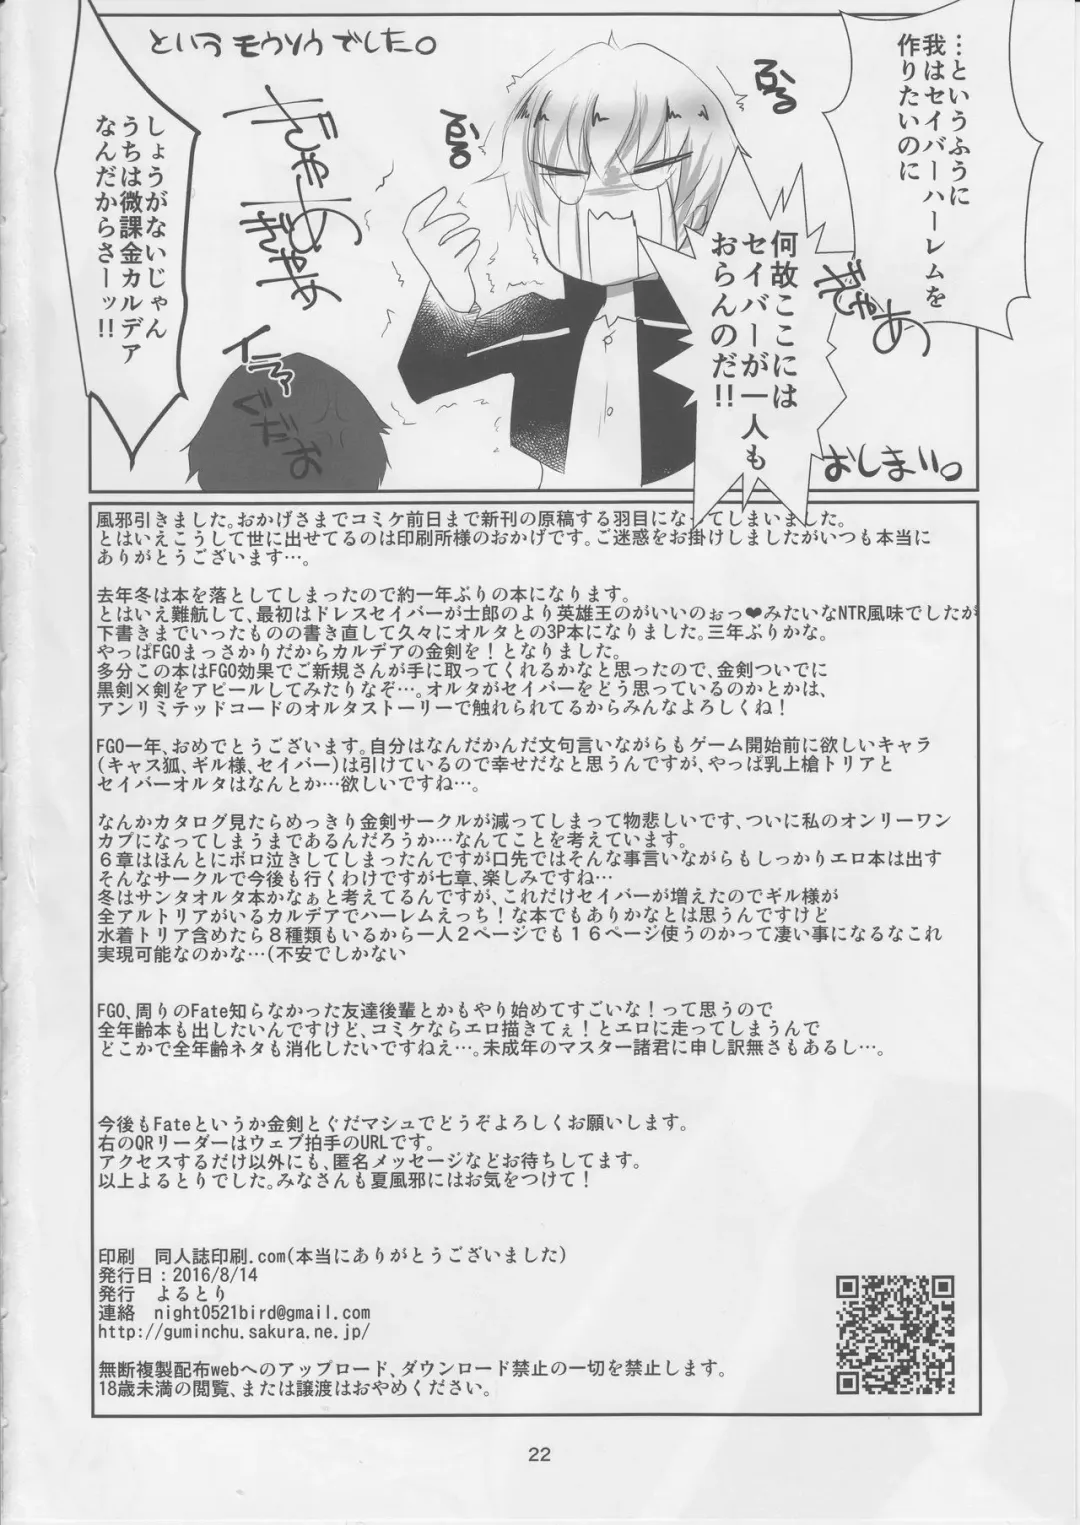 …というふうに
我はセイバーハーレムを
作りたいのに
というモウソウでした。
ぶるる
ぶるる
何故ここには
セイバーが一人も
おらんのだ!!
ぎゃあ
ぎゃあ
ぎゃあ
しょうがないじゃん
うちは微課金カルデア
なんだからさーッ!!
イラァ
ぐだお
おしまい。
風邪引きました。おかげさまでコミケ前日まで新刊の原稿する羽目になってしまいました。
とはいえこうして世に出せてるのは印刷所様のおかげです。ご迷惑をお掛けしましたがいつも本当に
ありがとうございます…。
去年冬は本を落としてしまったので約一年ぶりの本になります。
とはいえ難航して、最初はドレスセイバーが士郎のより英雄王のがいいのぉっ❤みたいなNTR風味でしたが
下書きまでいったものの書き直して久々にオルタとの3P本になりました。三年ぶりかな。
やっぱFGOまっさかりだからカルデアの金剣を！となりました。
多分この本はFGO効果でご新規さんが手に取ってくれるかなと思ったので、金剣ついでに
黒剣×剣をアピールしてみたりなぞ…。オルタがセイバーをどう思っているのかとかは、
アンリミテッドコードのオルタストーリーで触れられてるからみんなよろしくね！
FGO一年、おめでとうございます。自分はなんだかんだ文句言いながらもゲーム開始前に欲しいキャラ
(キャス狐、ギル様、セイバー)は引けているので幸せだなと思うんですが、やっぱ乳上槍トリアと
セイバーオルタはなんとか…欲しいですね…。
なんかカタログ見たらめっきり金剣サークルが減ってしまって物悲しいです、ついに私のオンリーワン
カプになってしまうまであるんだろうか…なんてことを考えています。
６章はほんとにボロ泣きしてしまったんですが口先ではそんな事言いながらもしっかりエロ本は出す
そんなサークルで今後も行くわけですが七章、楽しみですね…
冬はサンタオルタ本かなぁと考えてるんですが、これだけセイバーが増えたのでギル様が
全アルトリアがいるカルデアでハーレムえっち！な本でもありかなとは思うんですけど
水着トリア含めたら８種類もいるから一人２ページでも１６ページ使うのかって凄い事になるなこれ
実現可能なのかな…(不安でしかない
FGO、周りのFate知らなかった友達後輩とかもやり始めてすごいな！って思うので
全年齢本も出したいんですけど、コミケならエロ描きてぇ！とエロに走ってしまうんで
どこかで全年齢ネタも消化したいですねえ…。未成年のマスター諸君に申し訳無さもあるし…。
今後もFateというか金剣とぐだマシュでどうぞよろしくお願いします。
右のQRリーダーはウェブ拍手のURLです。
アクセスするだけ以外にも、匿名メッセージなどお待ちしてます。
以上よるとりでした。みなさんも夏風邪にはお気をつけて！
印刷　同人誌印刷.com(本当にありがとうございました)
発行日：2016/8/14
発行　よるとり
連絡　night0521bird@gmail.com
http://guminchu.sakura.ne.jp/
無断複製配布webへのアップロード、ダウンロード禁止の一切を禁止します。
18歳未満の閲覧、または譲渡はおやめください。
22